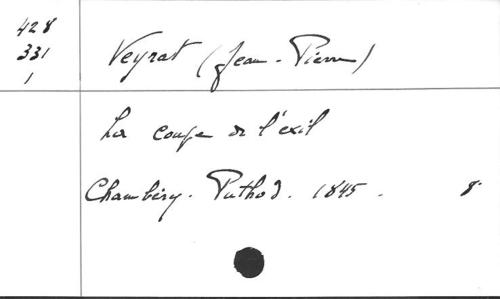 428
331
1
Veyrat (Jean-Pierre)
La coupe de l'exil
Chambéry. Puthod. 1845. 8°